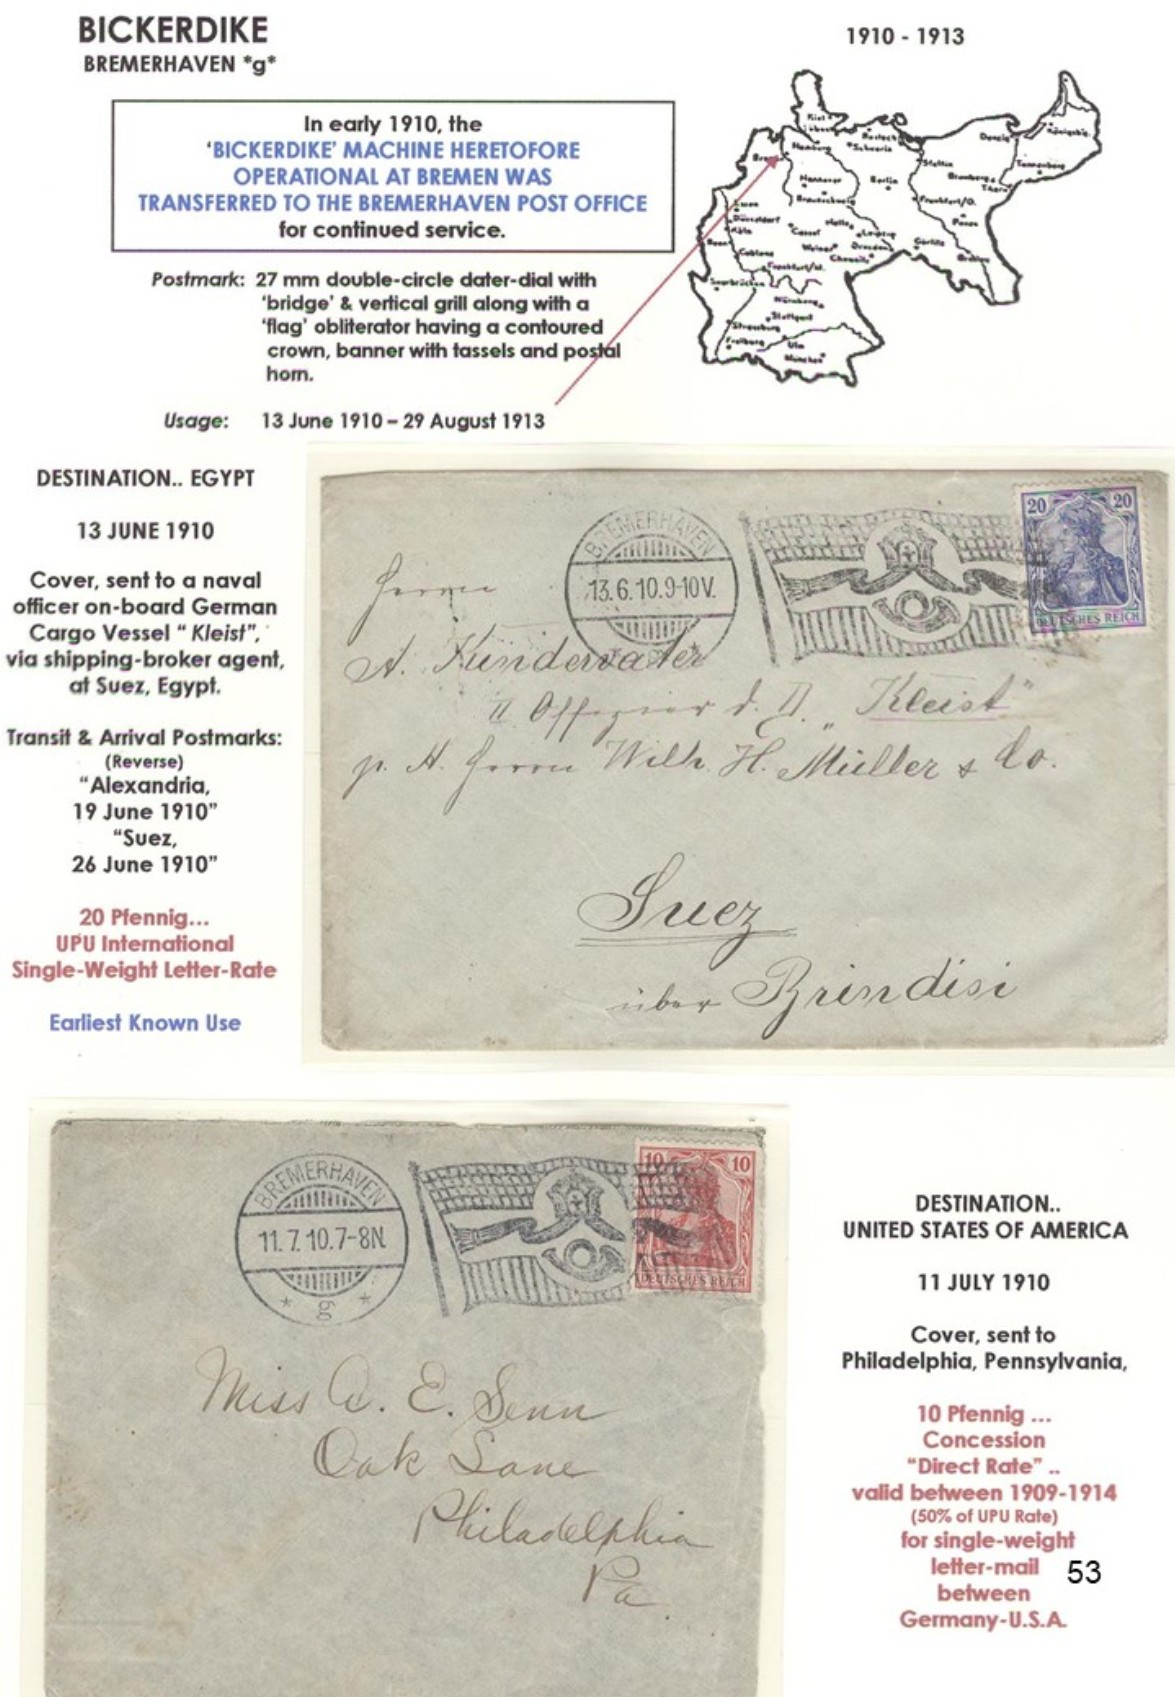 BICKERDIKE
BREMERHAVEN *g*
1910 - 1913
In early 1910, the
'BICKERDIKE' MACHINE HERETOFORE
OPERATIONAL AT BREMEN WAS
TRANSFERRED TO THE BREMERHAVEN POST OFFICE
for continued service.
Kiel
Lübeck
Hamburg
Rostock
Schwerin
Danzig
Königsbg.
Stettin
Tannenberg
Bromberg
Thorn
Hannover
Berlin
Braunschweig
Frankfurt/O.
Posen
Essen
Düsseldorf
Köln
Cassel
Halle
Leipzig
Bonn
Weimar
Dresden
Görlitz
Coblenz
Chemnitz
Breslau
Frankfurt/M.
Saarbrücken
Nürnberg
Stuttgart
Strassburg
Freiburg
Ulm
München
Postmark: 27 mm double-circle dater-dial with
'bridge' & vertical grill along with a
'flag' obliterator having a contoured
crown, banner with tassels and postal
horn.
Usage: 13 June 1910 – 29 August 1913
DESTINATION.. EGYPT
13 JUNE 1910
Cover, sent to a naval
officer on-board German
Cargo Vessel " Kleist",
via shipping-broker agent,
at Suez, Egypt.
Transit & Arrival Postmarks:
(Reverse)
"Alexandria,
19 June 1910"
"Suez,
26 June 1910"
20 Pfennig...
UPU International
Single-Weight Letter-Rate
Earliest Known Use
BREMERHAVEN
13.6.10.9-10V.
20 20
DEUTSCHES REICH
Herrn
A. Kindervater
II Offizier d. D. „Kleist"
p. A. Herrn Wilh. H. Müller & Co.
Suez
über Brindisi
BREMERHAVEN
11.7.10.7-8N.
* g *
10 10
DEUTSCHES REICH
Miss A. E. Senn
Oak Lane
Philadelphia
Pa.
DESTINATION..
UNITED STATES OF AMERICA
11 JULY 1910
Cover, sent to
Philadelphia, Pennsylvania,
10 Pfennig ...
Concession
"Direct Rate" ..
valid between 1909-1914
(50% of UPU Rate)
for single-weight
letter-mail
between
Germany-U.S.A.
53